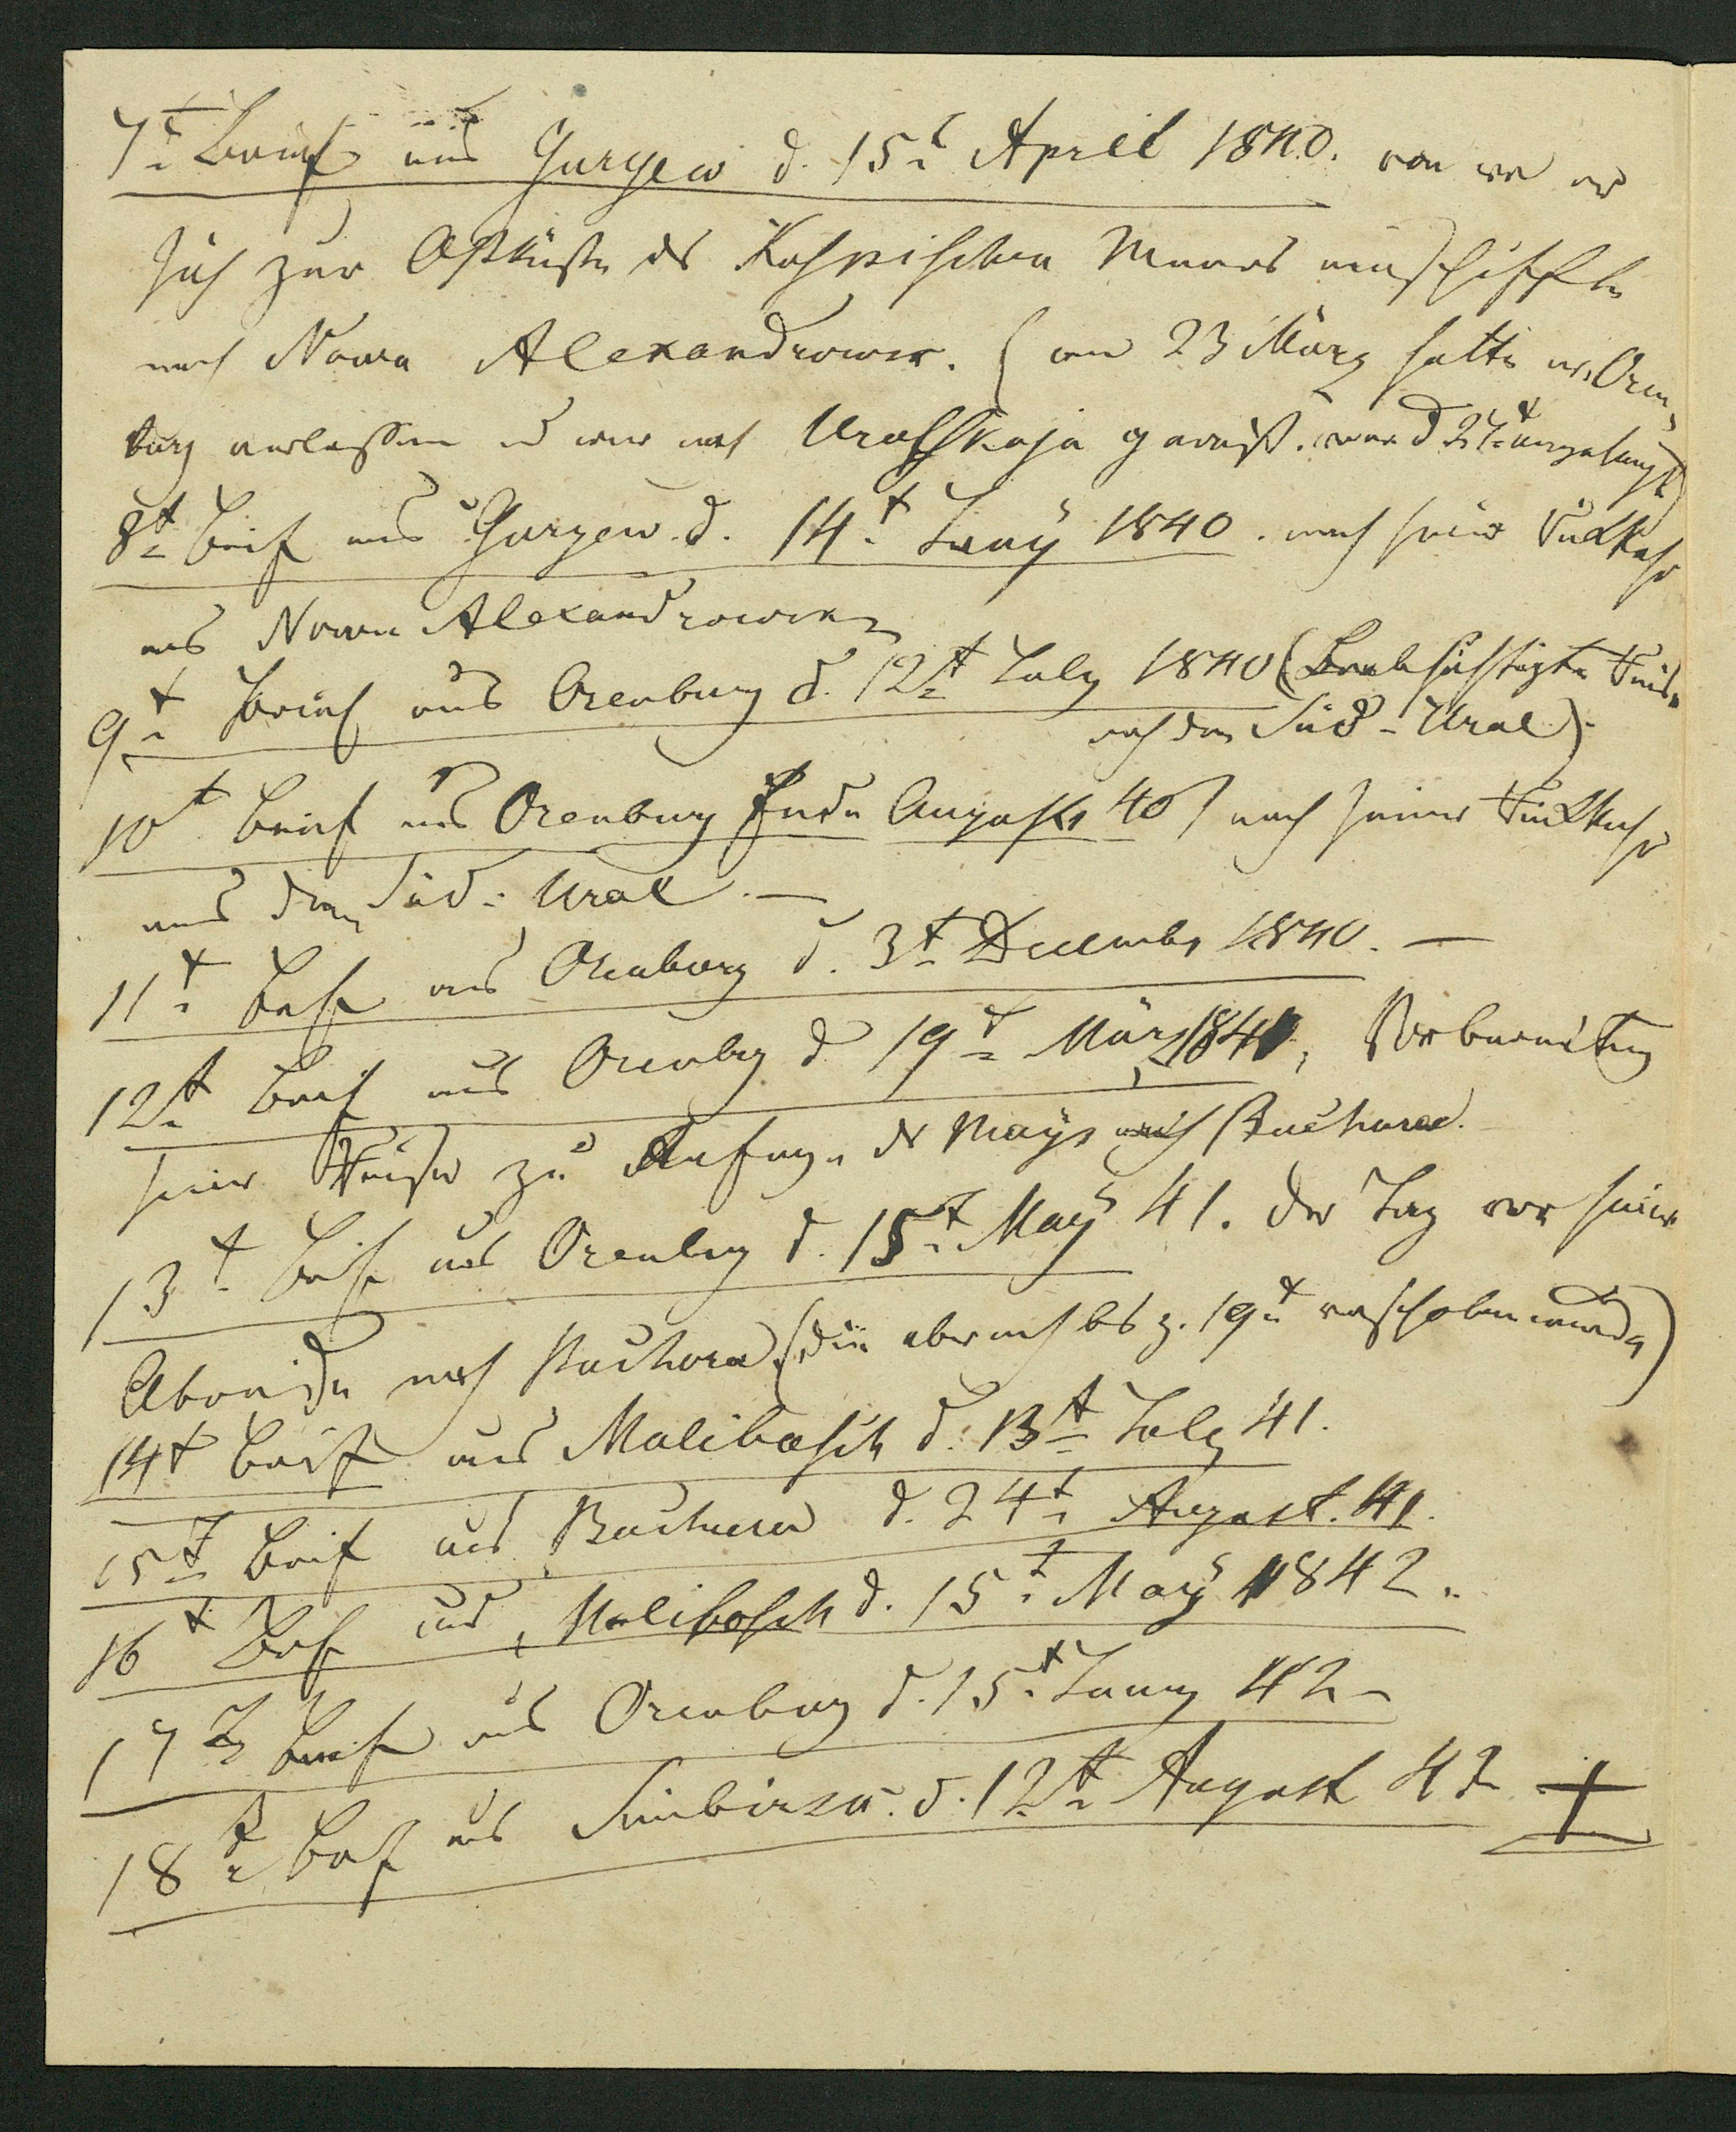 7t Brief aus Gurgew d. 15t April 1840. von wo er
sich zur Ostküste des Kaspischen Meeres einschiffte
nach Nowa Alexandrowsk. (am 23 März hatte er Oren-
burg verlassen u war nach Uralskaja gereist. war d 27t angelangt)
8t Brief aus Gurgew. d. 14t Juny 1840. nach seiner Rückkehr
aus Nowa Alexandrowsk
9t Brief aus Orenburg d. 12t July 1840 (Beabsichtigte Reise
nach dem Süd-Ural).
10t Brief aus Orenburg Ende Augusts 40 nach seiner Rückkehr
aus dem Süd-Ural. —
11t Brief aus Orenburg d. 3t Decembr 1840. —
12t Brief aus Orenbrg d 19t März 1841, Vorbereitung
seiner Reise zu Anfange des Mays nach Buchara.
13t Brief aus Orenbrg d. 15t May 41. Der Tag vor seiner
Abreise nach Buchara (die aber noch bis z. 19t verschoben wurde)
14t Brief aus Malibasch d. 13t July 41.
15t Brief aus Buchara d. 24t August. 41.
16t Brief aus Malibasch d. 15t May 1842.
17t Brief aus Orenburg d. 15t Juny 42
18t Brief aus Simbirsk. d. 12t August 42 +